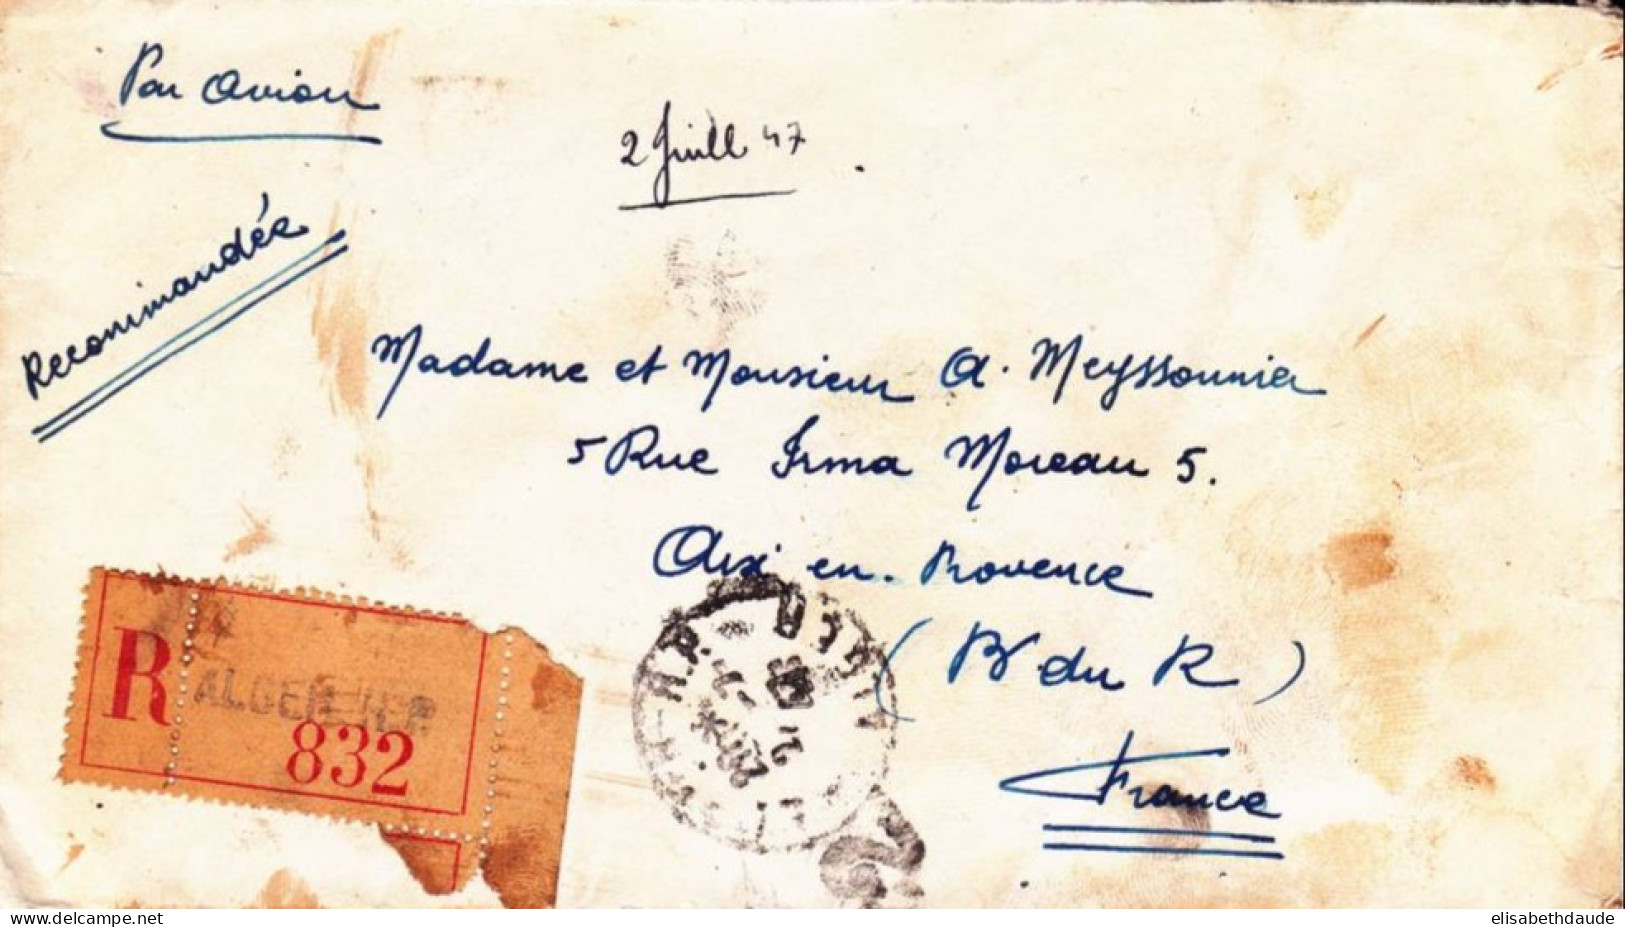 Par Avion
2 Juill 47
Recommandée
Madame et Monsieur A. Meyssonnier
5 Rue Irma Moreau 5.
Aix en. Provence
(B. du R)
France
R
ALGER R.P
832
ALGER
delcampe.net
elisabethdaude